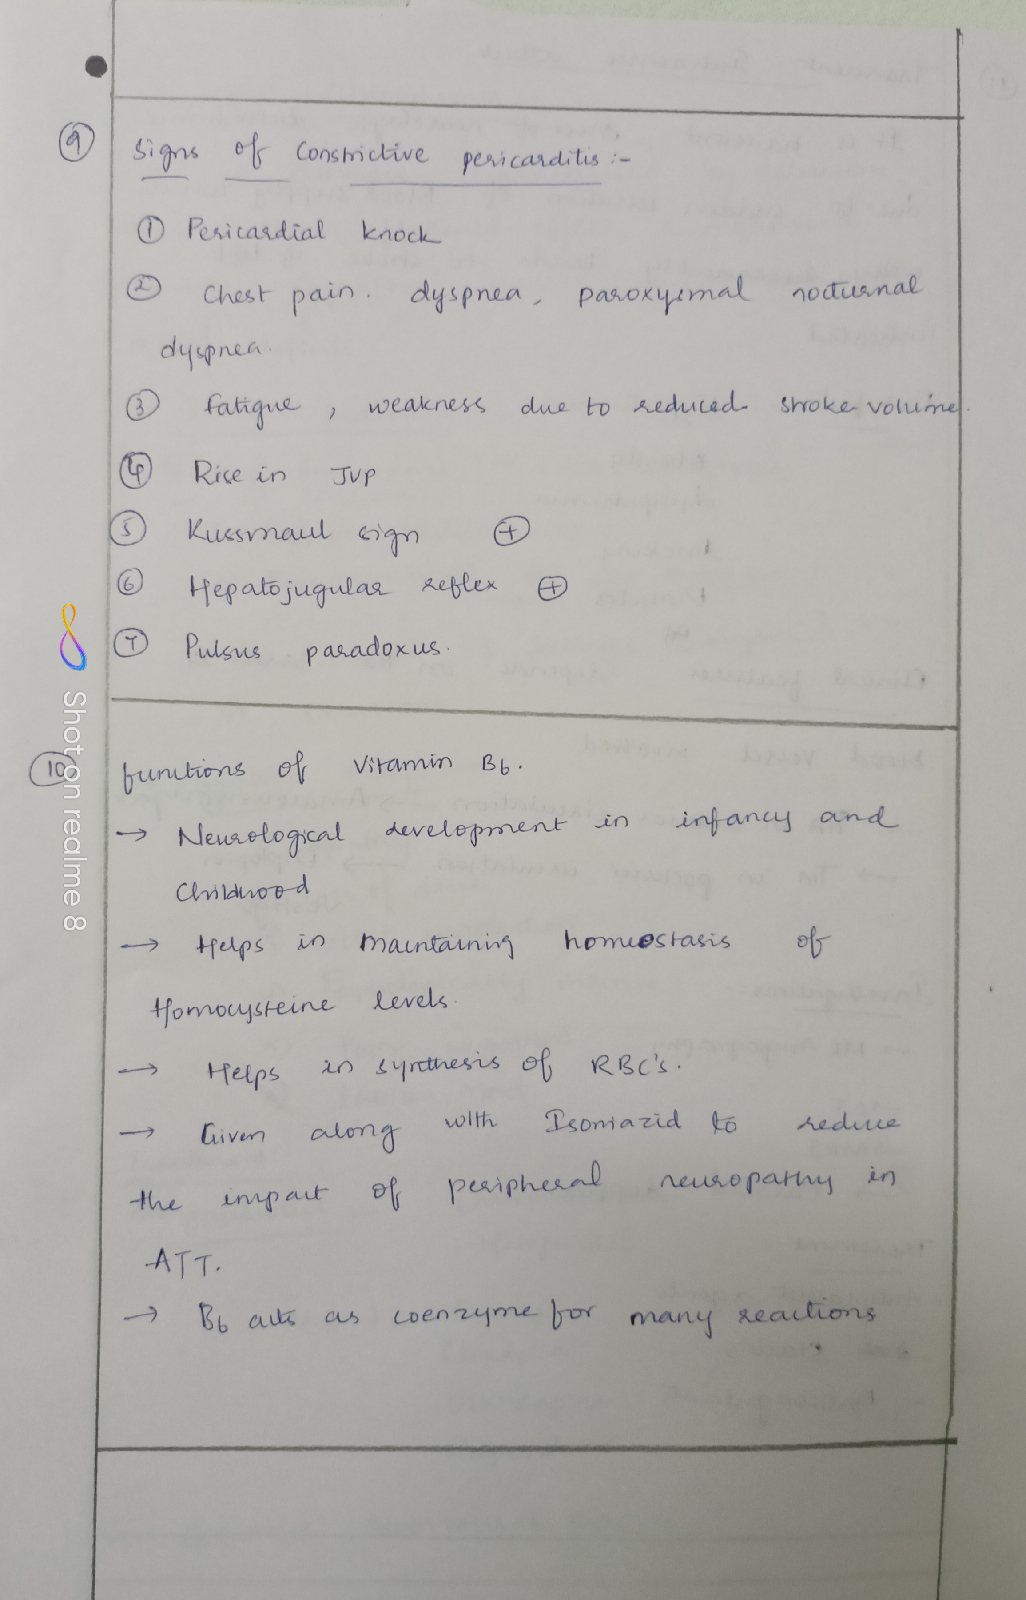 9 Signs of Constrictive pericarditis :-
1 Pericardial knock
2 Chest pain. dyspnea, paroxysmal nocturnal
dyspnea.
3 fatigue, weakness due to reduced stroke volume.
4 Rise in JVP
5 Kussmaul sign +
6 Hepatojugular reflex +
7 Pulsus paradoxus.
10 functions of Vitamin B6.
→ Neurological development in infancy and
Childhood
→ Helps in maintaining homeostasis of
Homocysteine levels.
→ Helps in synthesis of RBC's.
→ Given along with Isoniazid to reduce
the impact of peripheral neuropathy in
ATT.
→ B6 acts as coenzyme for many reactions
Shot on realme 8